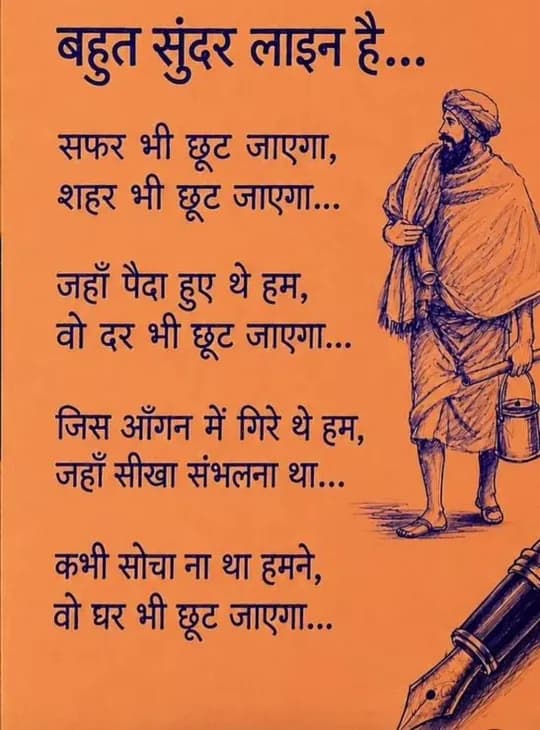 बहुत सुंदर लाइन है...
सफर भी छूट जाएगा,
शहर भी छूट जाएगा...
जहाँ पैदा हुए थे हम,
वो दर भी छूट जाएगा...
जिस आँगन में गिरे थे हम,
जहाँ सीखा संभलना था...
कभी सोचा ना था हमने,
वो घर भी छूट जाएगा...